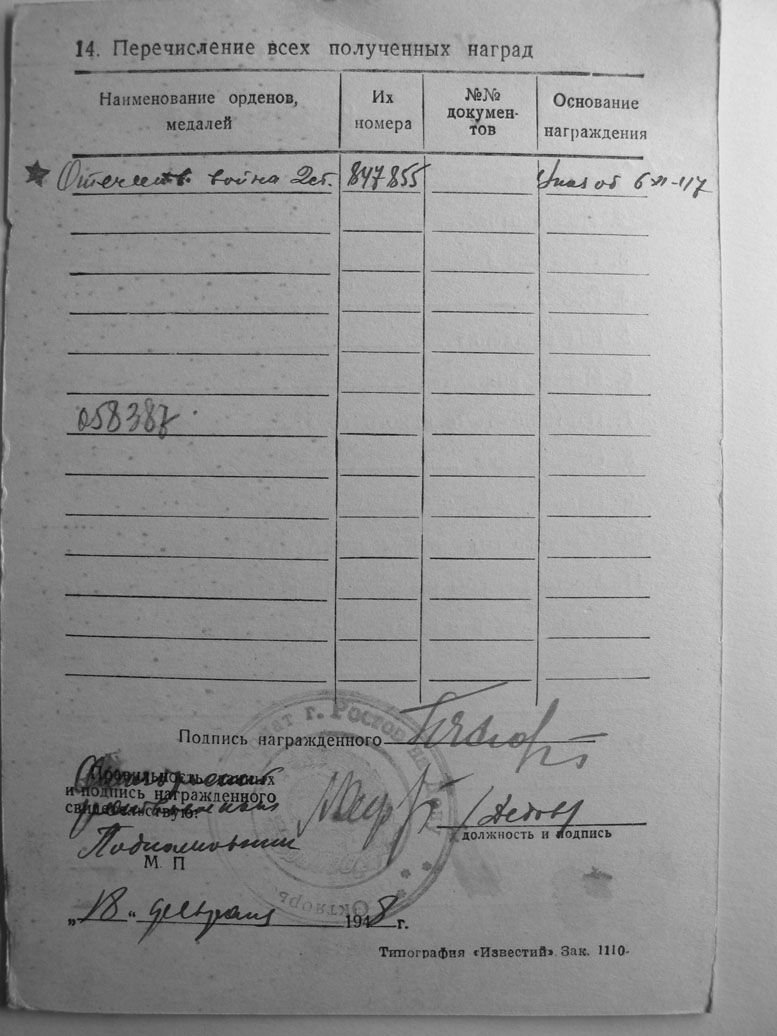 14. Перечисление всех полученных наград
Наименование орденов, медалей
Их номера
№№ документов
Основание награждения
Отечеств. война 2ст. 847855 Указ от 6-XI-47
058387
Подпись награжденного
Правильность данных
и подпись награжденного
свидетельствую:
Подполковник
должность и подпись
М. П
„18“ февраля 1948 г.
г. Ростов на Дону
Октябрь
Типография «Известий». Зак. 1110.